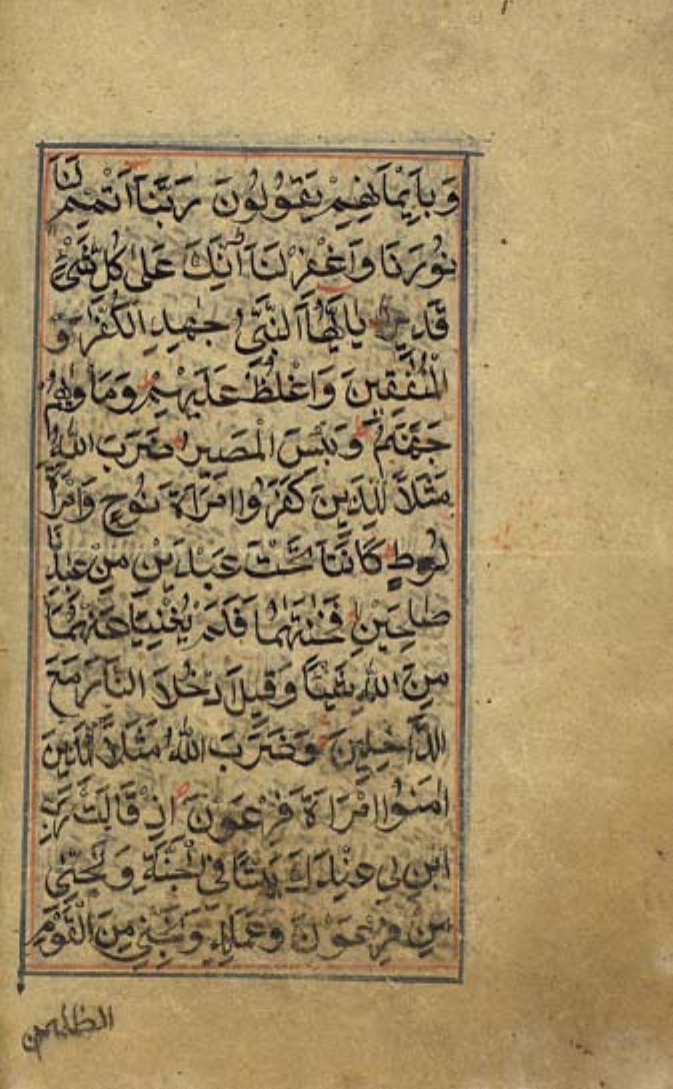 وَبِاَيْمَانِهِمْ يَقُوْلُوْنَ رَبَّنَا اَتْمِمْ لَنَا
نُوْرَنَا وَاغْفِرْ لَنَا اِنَّكَ عَلٰى كُلِّ شَیْءٍ
قَدِيْرٌ يٰاَيُّهَا النَّبِیُّ جٰهِدِ الْكُفَّارَ وَ
الْمُنٰفِقِيْنَ وَاغْلُظْ عَلَيْهِمْ وَمَاْوٰىهُمْ
جَهَنَّمُ وَبِئْسَ الْمَصِيْرُ ضَرَبَ اللّٰهُ
مَثَلًا لِّلَّذِيْنَ كَفَرُوا امْرَاَةَ نُوْحٍ وَامْرَاَةَ
لُوْطٍ كَانَتَا تَحْتَ عَبْدَيْنِ مِنْ عِبَادِنَا
صَالِحَيْنِ فَخَانَتٰهُمَا فَلَمْ يُغْنِيَا عَنْهُمَا
مِنَ اللّٰهِ شَيْئًا وَقِيْلَ ادْخُلَا النَّارَ مَعَ
الدَّاخِلِيْنَ وَضَرَبَ اللّٰهُ مَثَلًا لِّلَّذِيْنَ
اٰمَنُوا امْرَاَةَ فِرْعَوْنَ اِذْ قَالَتْ رَبِّ
ابْنِ لِی عِنْدَكَ بَيْتًا فِی الْجَنَّةِ وَنَجِّنِی
مِنْ فِرْعَوْنَ وَعَمَلِهٖ وَنَجِّنِی مِنَ الْقَوْمِ
الظالمین